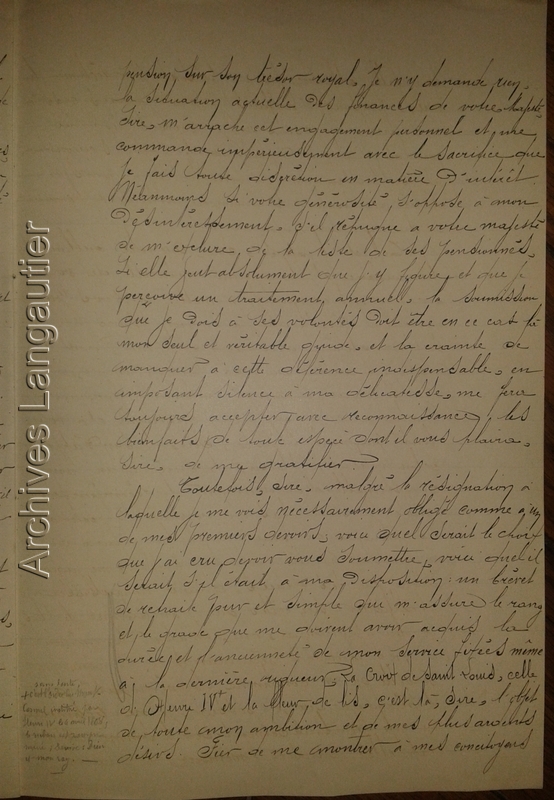 pension, sur son trésor royal. Je n'y demande rien,
la situation actuelle des finances de votre Majesté
Sire, m'arrache cet engagement personnel et me
commande impérieusement avec le sacrifice que
je fais toute discrétion en matière d'intérêt.
Néanmoins si votre générosité, s'oppose à mon
désintéressement, s'il répugne a votre majesté
de m'exclure, de la liste de ses pensionnés.
Si elle veut absolument que j'y figure et que je
perçoive un traitement annuel, la soumission
que je dois à ses volontés doit être en ce cas là
mon seul et véritable guide, et la crainte de
manquer à cette déférence indispensable, en
imposant silence à ma délicatesse, me fera
toujours accepter, avec reconnaissance, les
bienfaits de toute espèce dont il vous plaira,
Sire, de me gratifier.
Toutefois, Sire, malgré la résignation à
laquelle je me vois nécessairement obligé comme à un
de mes premiers devoirs, voici quel serait le choix
que j'ai cru devoir vous soumettre, voici quel il
serait s'il était à ma disposition: un brevet
de retraite pur et simple qui m'assure le rang
et le grade que me doivent avoir acquis la
durée et l'ancienneté de mon service fixées même
à la dernière rigueur. La Croix de Saint Louis, celle
d'Henri IV et la fleur de lis, c'est là, Sire, l'objet
de toute mon ambition et de mes plus ardents
désirs. Fier de me montrer à mes concitoyens
Archives Langautier